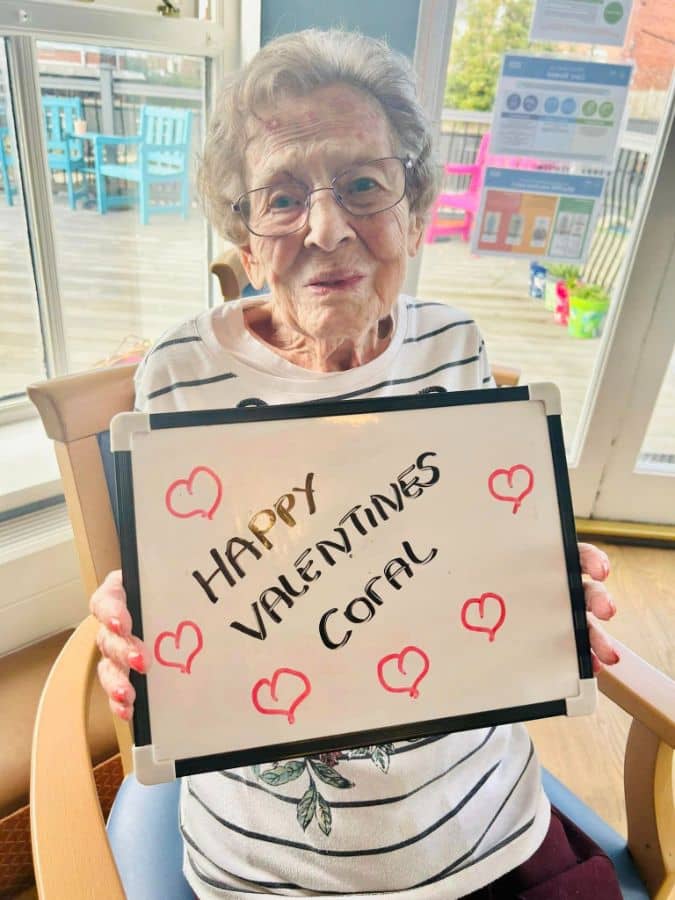 HAPPY
VALENTINES
Coral